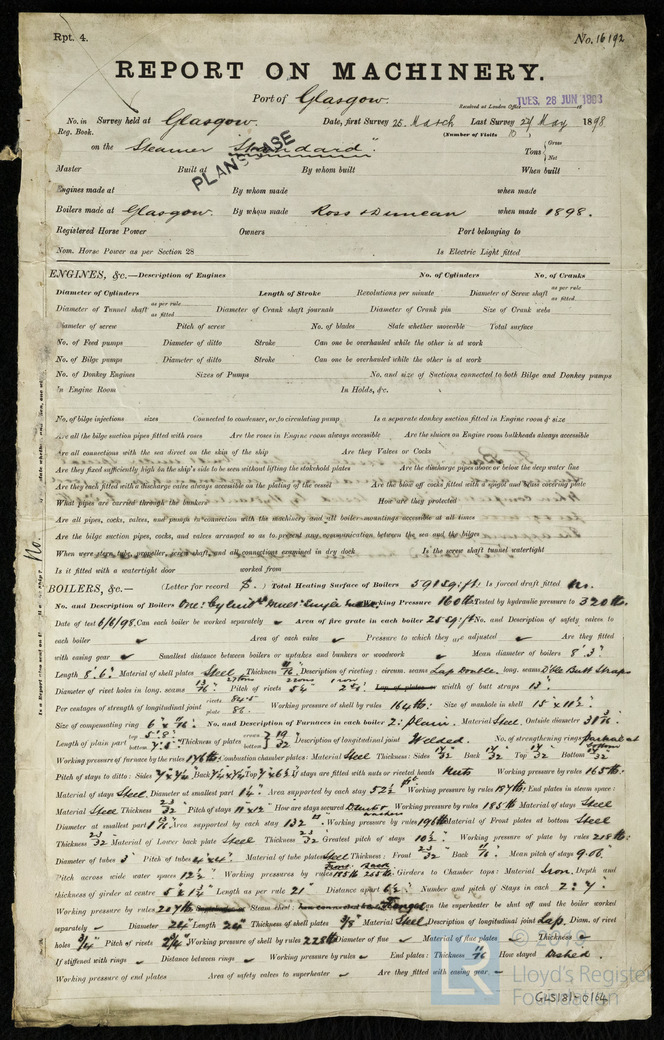 Rpt. 4.
No. 16192
REPORT ON MACHINERY.
Port of Glasgow.
Received at London Office TUES. 28 JUN 1898
No. in Survey held at Glasgow. Date, first Survey 25. March Last Survey 27 May 1898
Reg. Book. (Number of Visits 10
on the Steamer "Standard". Tons Gross Net
PLANS CASE
Master Built at By whom built When built
Engines made at By whom made when made
Boilers made at Glasgow. By whom made Ross & Duncan when made 1898.
Registered Horse Power Owners Port belonging to
Nom. Horse Power as per Section 28 Is Electric Light fitted
ENGINES, &c.—Description of Engines No. of Cylinders No. of Cranks
Diameter of Cylinders Length of Stroke Revolutions per minute Diameter of Screw shaft as per rule as fitted
Diameter of Tunnel shaft as per rule as fitted Diameter of Crank shaft journals Diameter of Crank pin Size of Crank webs
Diameter of screw Pitch of screw No. of blades State whether moveable Total surface
No. of Feed pumps Diameter of ditto Stroke Can one be overhauled while the other is at work
No. of Bilge pumps Diameter of ditto Stroke Can one be overhauled while the other is at work
No. of Donkey Engines Sizes of Pumps No. and size of Suctions connected to both Bilge and Donkey pumps
In Engine Room In Holds, &c.
No. of bilge injections sizes Connected to condenser, or to circulating pump Is a separate donkey suction fitted in Engine room & size
Are all the bilge suction pipes fitted with roses Are the roses in Engine room always accessible Are the sluices on Engine room bulkheads always accessible
Are all connections with the sea direct on the skin of the ship Are they Valves or Cocks
Are they fixed sufficiently high on the ship's side to be seen without lifting the stokehold plates Are the discharge pipes above or below the deep water line
Are they each fitted with a discharge valve always accessible on the plating of the vessel Are the blow off cocks fitted with a spigot and brass covering plate
What pipes are carried through the bunkers How are they protected
Are all pipes, cocks, valves, and pumps in connection with the machinery and all boiler mountings accessible at all times
Are the bilge suction pipes, cocks, and valves arranged so as to prevent any communication between the sea and the bilges
When were stern tube, propeller, screw shaft, and all connections examined in dry dock Is the screw shaft tunnel watertight
Is it fitted with a watertight door worked from
BOILERS, &c.— (Letter for record S.) Total Heating Surface of Boilers 591 sq. ft. Is forced draft fitted No.
No. and Description of Boilers One: Cylind Mult Single Working Pressure 160 lb. Tested by hydraulic pressure to 320 lb.
Date of test 6/6/98. Can each boiler be worked separately Area of fire grate in each boiler 25 sq. ft. No. and Description of safety valves to
each boiler Area of each valve Pressure to which they are adjusted Are they fitted
with easing gear Smallest distance between boilers or uptakes and bunkers or woodwork Mean diameter of boilers 8' 3"
Length 8' 6" Material of shell plates Steel Thickness 11/16" Description of riveting: circum. seams Lap Double. long. seams D'ble Butt Straps
Diameter of rivet holes in long. seams 13/16" Pitch of rivets width of butt straps 13"
Per centages of strength of longitudinal joint rivets 84.5 plate 86. Working pressure of shell by rules 164 lb. Size of manhole in shell 15" x 10½"
Size of compensating ring 6" x 11/16" No. and Description of Furnaces in each boiler 2: plain. Material Steel. Outside diameter
Length of plain part top 5'-8" bottom Thickness of plates crown bottom 19/32 Description of longitudinal joint Welded. No. of strengthening rings partial at bottom
Working pressure of furnace by the rules 176 lb. Combustion chamber plates: Material Steel Thickness: Sides 17/32 Back 17/32 Top 17/32 Bottom
Pitch of stays to ditto: Sides Back Top If stays are fitted with nuts or riveted heads Nuts Working pressure by rules 165 lb.
Material of stays Steel. Diameter at smallest part 1¼" Area supported by each stay 52½ Working pressure by rules 187 lb. End plates in steam space:
Material Steel Thickness 23/32 Pitch of stays 11" x 12" How are stays secured D. nuts & washers Working pressure by rules 185 lb. Material of stays Steel
Diameter at smallest part Area supported by each stay 132 Working pressure by rules 196 lb. Material of Front plates at bottom Steel
Thickness 23/32 Material of Lower back plate Steel Thickness 23/32 Greatest pitch of stays 10½" Working pressure of plate by rules 218 lb.
Diameter of tubes 3" Pitch of tubes Material of tube plates Steel Thickness: Front 23/32 Back 11/16 Mean pitch of stays 9.06"
Pitch across wide water spaces 12½" Working pressures by rules Front 185 lb. Back 205 lb. Girders to Chamber tops: Material Iron. Depth and
thickness of girder at centre 5" x 1¾" Length as per rule 21" Distance apart 6½" Number and pitch of Stays in each 2: 7"
Working pressure by rules 207 lb. Steam chest: Flanged Can the superheater be shut off and the boiler worked
separately Diameter 24" Length 24" Thickness of shell plates 3/8" Material Steel Description of longitudinal joint Lap. Diam. of rivet
holes 3/4" Pitch of rivets 2¼" Working pressure of shell by rules 228 lb. Diameter of flue Material of flue plates Thickness
If stiffened with rings Distance between rings Working pressure by rules End plates: Thickness 11/16 How stayed Dished.
Working pressure of end plates Area of safety valves to superheater Are they fitted with easing gear
© 2019
Lloyd's Register
Foundation
LR
GLS181-0164